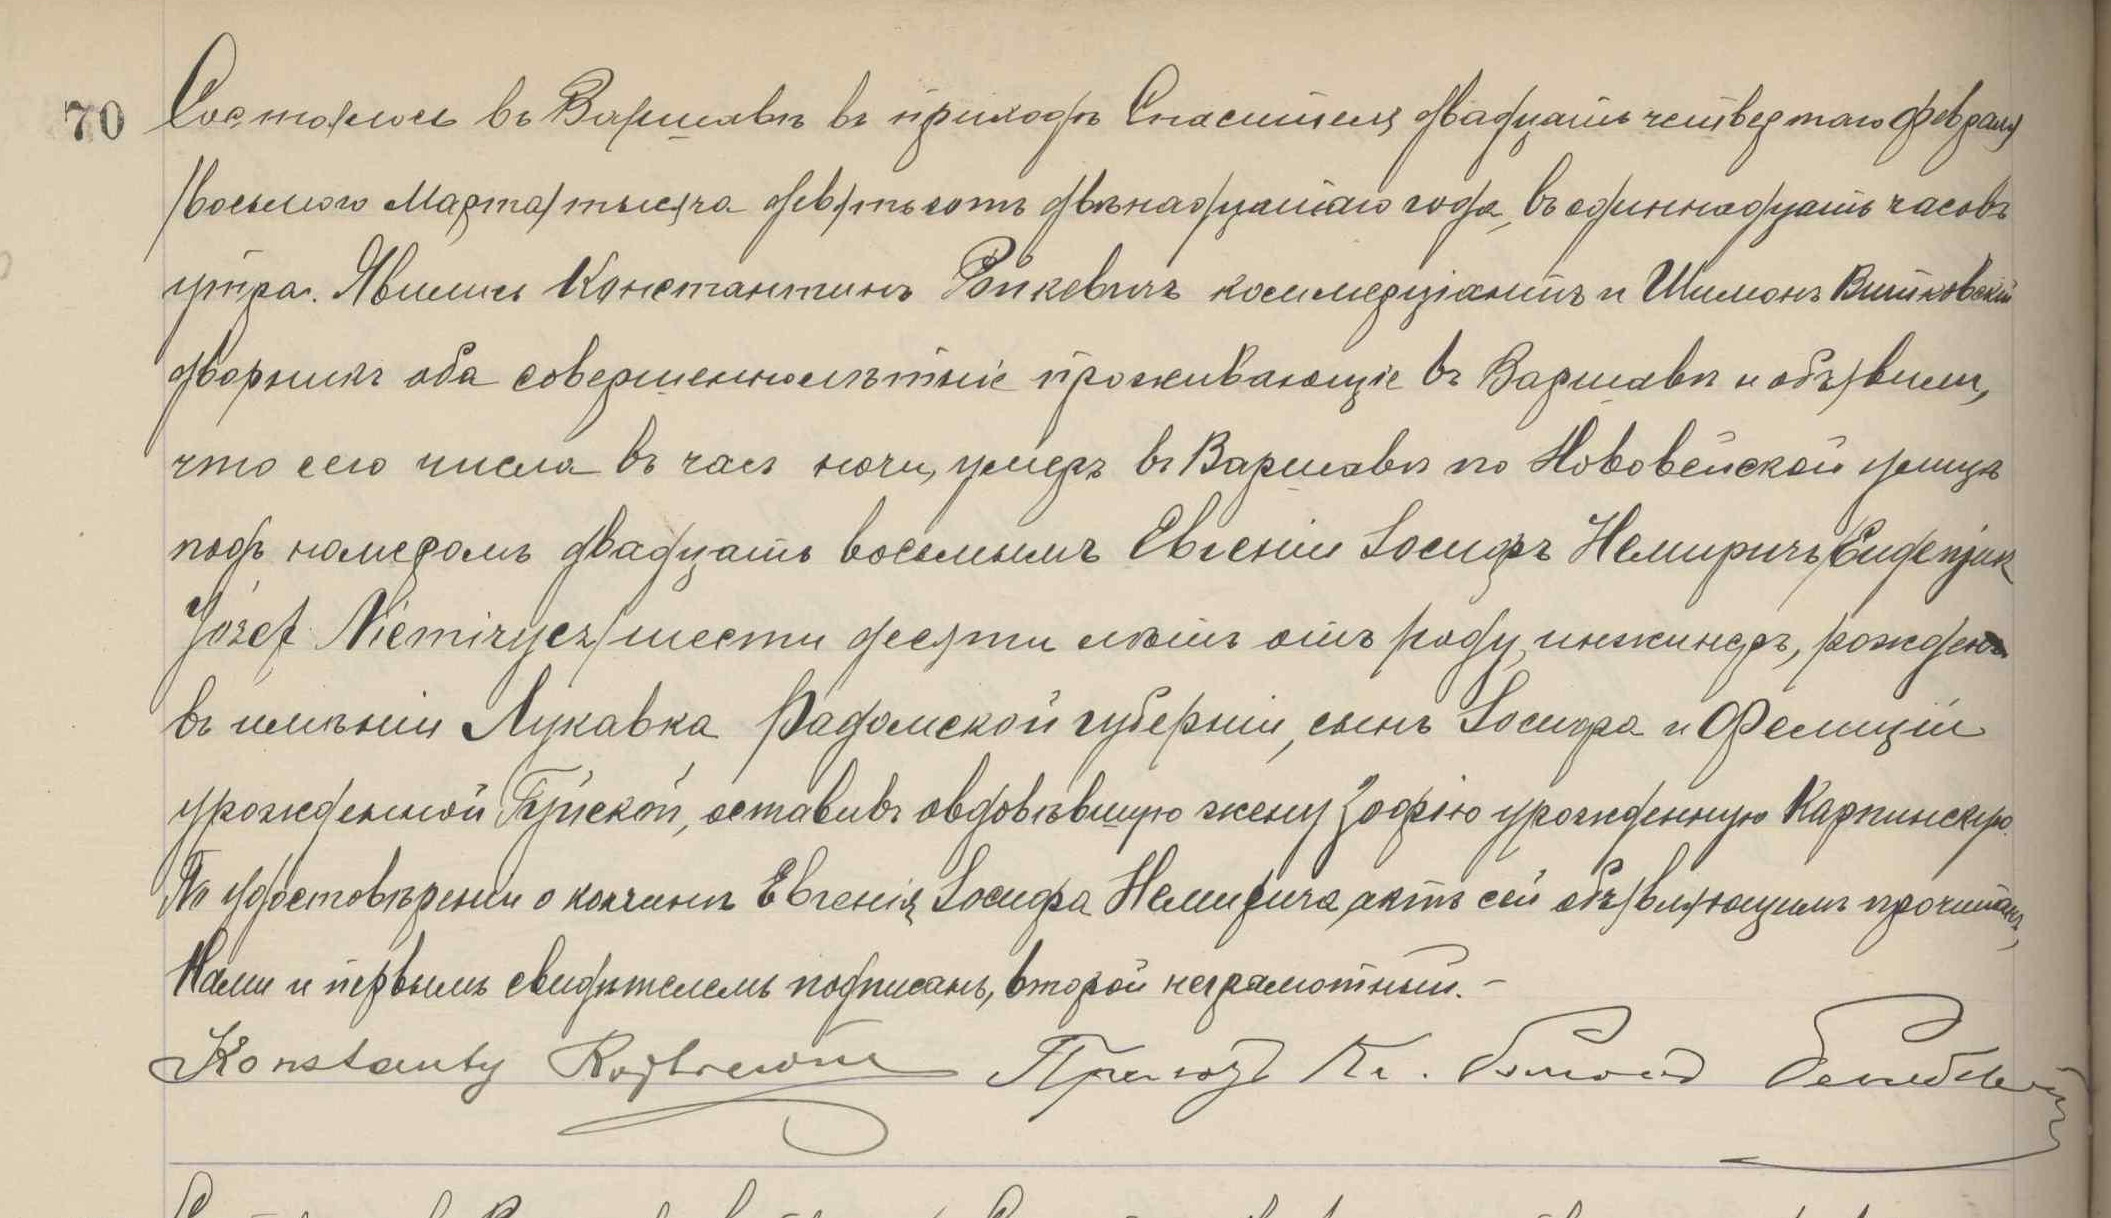 70
Состоялось въ Варшавѣ въ приходѣ Спасителя двадцать четвертаго Февраля
/восьмого Марта/ тысяча девятьсотъ двѣнадцатаго года, въ одиннадцать часовъ
утра. Явились Константинъ Ройкевичъ коммерціантъ и Шимонъ Витковскій
дворникъ оба совершеннолѣтніе проживающіе въ Варшавѣ и объявили,
что сего числа въ часъ ночи, умеръ въ Варшавѣ по Нововейской улицѣ
подъ номеромъ двадцать восьмымъ Евгеній Іосифъ Немиричъ /Eugenjusz
Józef Niemirycz/ шести десяти лѣтъ отъ роду, инжинеръ, рожденъ
въ имѣніи Лукавка Радомской губерніи, сынъ Іосифа и Фелиціи
урожденной, оставивъ овдовѣвшую жену Зофію урожденную Карпинскую.
По удостовѣреніи о кончинѣ Евгенія Іосифа Немирича, актъ сей объявляющимъ прочитанъ,
Нами и первымъ свидѣтелемъ подписанъ, второй неграмотный. -
Konstanty Rojkiewicz